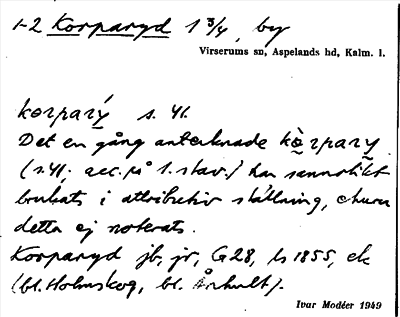 1-2 Korparyd 1 3/4, by
Virserums sn, Aspelands hd, Kalm. l.
korparý s. 41.
Det en gång antecknade kòrpary
(s. 41, acc. på 1. stav.) har sannolikt
brukats i attributiv ställning, ehuru
detta ej noterats.
Korparyd jb, jr, G 28, ls 1855, ek
(bl. Holmskog, bl. Århult).
Ivar Modéer 1949